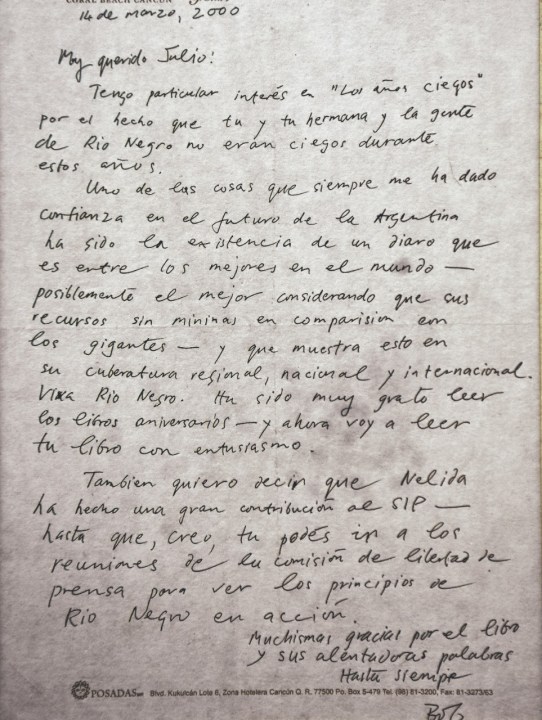 CORAL BEACH CANCÚN
14 de marzo, 2000
My querido Julio:
Tengo particular interés en "Los años ciegos"
por el hecho que tu y tu hermana y la gente
de Río Negro no eran ciegos durante
estos años.
Uno de las cosas que siempre me ha dado
confianza en el futuro de la Argentina
ha sido la existencia de un diaro que
es entre los mejores en el mundo —
posiblemente el mejor considerando que sus
recursos sin mininas en comparision con
los gigantes — y que muestra esto en
su cuberatura regional, nacional y internacional.
Viva Rio Negro. Ha sido muy grato leer
los libros aniversarios — y ahora voy a leer
tu libro con entusiasmo.
Tambien quiero decir que Nelida
ha hecho una gran contribución al SIP —
hasta que, creo, tu podés ir a los
reuniones de la comisión de libertad de
prensa para ver los principios de
Rio Negro en acción.
Muchismas gracias por el libro
y sus alentadoras palabras
Hasta siempre
POSADAS Blvd. Kukulcán Lote 6, Zona Hotelera Cancún Q. R. 77500 Po. Box 5-479 Tel. (98) 81-3200, Fax: 81-3273/63
Bob